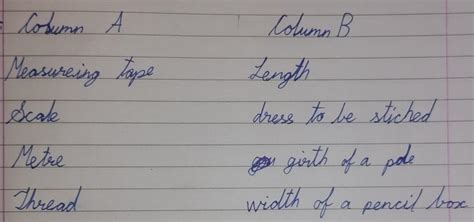 Column A Column B
Measureing tape Length
Scale dress to be stiched
Metre girth of a pole
Thread width of a pencil box